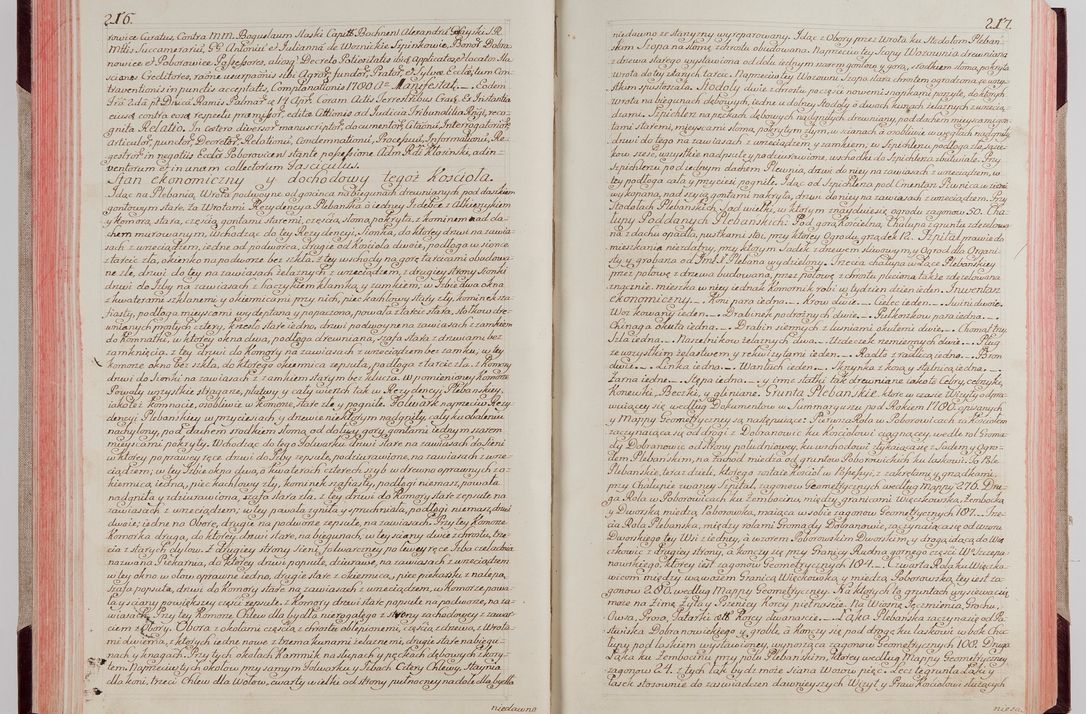 216.
rowice Curatus, Contra MM. Bogusłaum Slaski Capitt. Bochnen Alexandrū
Mttis Succamerariū, GG Antoniū et Juliannā de Woznickie Szpinkowie, Bonor̄ Dobra-
nowice et Poborowice Possessores, aliosq̄ Decreto Potiestatis ibid Applicatae
sciones Creditores, raōne usurpaōnis sibi Agror̄, fundor̄, Prator̄, et Sylvae Ecclae, tum Con
traventionis in punctis acceptatis, Complanationis 1700 do Manifestaō. Eodem
Coram Actis Terrestribus Crac. Ex Instantia
eiusd contra eosd respectu pramissor̄, edita Citationis ad Judicia Tribunalitia Regni, reco-
gnita Relatio. In cetero diversor̄ manuscriptor̄, documentor̄, Citaōnū, Interrogatorior̄,
articulor̄, punctor̄, Decretor̄, Relationū, Condemnationū, Processuū, Informationū, Re-
gestror̄ in negotiis Ecclae Poborovicen stante possessione Adm. Rdi Ktosinski, adin-
ventorum et in unam collectorum Fasciculus.
Stan ekonomiczny y dochodowy tegoż Kościoła.
Idąc na Plebanią Wrota pierwsze od goscinca na biegunach drewnianych pod daszkiem
gontowym stare. Za Wrotami Rezydencya Plebańska o jedney Izdebce z Alkierzykiem
y komorą, stara, częścią gontami staremi, częścią, słomą pokryta, z kominem nad da-
chem murowanym, Wchodząc do tey Rezydencyi, Sionka, do ktorey drzwi na zawia-
sach z wrzeciądzem, iedne od podworca, drugie od Kościoła dwoie, podłoga w sionce
z tarcic zła, okienko na podworze bez szkła. z tey wschody na gorę tarcicami obudowa-
ne złe, drzwi do tey na zawiasach żelaznych z wrzeciądzem, z drugiey strony Sionki
drzwi do Izby na zawiasach z haczykiem klamką y zamkiem, w Izbie dwa okna
z kwaterami szklanemi y okiennicami przy nich, piec kachlowy stary zły, kominek sza-
fiasty, podłoga miejscami wydeptana y popaczona, powała z tarcic stara, stołkow dre-
wnianych prostych cztery, krzesło stare iedno, drzwi podwoyne na zawiasach z zamkiem
do komnatki, w ktorey okna dwa, podłoga drewniana, szafa stara z drzwiami bez
zamknięcia. z tey drzwi do komory na zawiasach z wrzeciądzem bez zamku, w tey
komorze okno bez szkła, do ktorego okiennica zepsuta, podłoga z tarcic zła. z Komory
drzwi do sionki na zawiasach z zamkiem starym bez klucza. W pomienioney komorze
Powały wszystkie spruchniałe, płatwy y cały wierzch tak w Rezydencyi Plebańskiey,
iakoteż komnacie, osobliwie w komorze, stare złe y pogniłe. Folwark naprzeciw Rezy-
dencyi Plebańskiey w przyciesiach, y drzewie niektorym nadgniły, cały ku obaleniu
nachylony, pod dachem środkiem słomą, od dołu y gory, gontami iednym szarem
mieyscami pokryty. Wchodząc do tego Folwarku drzwi stare na zawiasach do Sieni
w ktorey po prawey ręce drzwi do Izby zepsute, podziurawione, na zawiasach z wrze-
ciądzem; w tey Izbie okna dwa, o kwaterach czterech szyb w drewno oprawnych z o-
kiennicą iedną, piec kachlowy zły, kominek szafiasty, podłogi niemasz, powała
nadgniła y zdziurawiona, szafa stara zła. z tey drzwi do Komory stare zepsute na
zawiasach z wrzeciądzem, w tey powała zgniła y spruchniała, podłogi niemasz, drzwi
dwoie; iedne na Oborę, drugie na podworze zepsute, na zawiasach. Przy tey Komorze
Komorka druga, do ktorey drzwi stare, na biegunach, w tey sciany dwie z chrostu, trze-
cia z starych dylow. z drugiey strony Sieni, folwarczney po lewey ręce Izba czeladnia
nazwana Piekarnia, do ktorey drzwi popsute, dziurawe, na zawiasach z wrzeciądzem
w tey okno w ołow oprawne iedno, drugie stare z okiennicą, piec piekarski z nalepą,
szafa popsuta, drzwi do Komory stare na zawiasach z wrzeciądzem, w komorze powa-
ła y sciany powiększey części zepsute. z Komory drzwi stare popsute na podworze, na za-
wiasach. Przy tey Komorze Chlew dla bydła nierogatego z Strony zachodniey z zawar-
ciem z Obory. Obora z okołami częścią, z chrostu oblepionemi, częścią z drzewa, z Wrota-
mi dwiema, z ktorych iedne nowe z trzema kunami żelaznemi, drugie stare na biegu-
nach y knagach. Przy tych okołach Karmnik na słupach y pęckach dębowych z kory-
tem. Naprzeciw tych okołow przy samym Folwarku y Izbach Cztery Chlewy, Stajnia
dla koni, trzeci Chlew dla Wołow, czwarty wielki od strony pułnocney na dole dla bydła
niedawno
217.
niedawno ze stanyny wyreparowany. Idąc z Obory przez Wrota ku Stodołom Plebań-
skim Szopa na słomę z chrostu obudowana. Naprzeciw tey Szopy Wozownia drewniana
z drzewa starego wystawiona od dołu iednym szarem gontow y gory, srodkiem słomą pokryta
wrota do tey złożonych tarcic. Naprzeciw tey Wozowni Szopa stara chrostem ogrodzona ze wszy-
stkim spustoszała. Stodoły dwie z chrostu poczęści nowemi snopkami poszyte, do ktorych
wrota na biegunach dębowych, iedne u dolney Stodoły o dwoch kunach żelaznych z wrzecią-
dzami. Szpichlerz na pęckach dębowych nadgniłych drewniany, pod dachem mieyscami gon-
tami staremi, mieyscami słomą pokrytym złym, w scianach a osobliwie w węgłach nadgniły
drzwi do tego na zawiasach z wrzeciądzem y zamkiem, w Szpichlerzu podłoga zła, sąsie-
kow szesc, wszystkie nadpsute y podziurawione, wschodki do szpichlerza zbutwiałe. Przy
Szpichlerzu pod iednym dachem Plewnia, drzwi do niey na zawiasach z wrzeciądzem, w
tey podłoga cała y przyciesi pogniłe. Idąc od Szpichlerza pod Cmentarz Piwnica w ziemi
wykopana, nad szyią gontami nakryta, drzwi do niey na zawiasach z wrzeciądzem. Przy
Stodołach Plebańskich Sad wielki, w ktorym znayduie się ogrodu zagonow 50. Cha-
łupy Poddanych Plebanskich. Pod gorą Kościelną Chałupa z gruntu zdezelowa-
na z dachu opadła, pustkami stoi, przy ktorey Ogrodu grządek 12. Szpital prawie do
mieszkania niezdatny, przy ktorym Sadek z drzewem śliwowym, y Ogrod dla Organi-
sty y grobarza od Imci X Plebana wydzielony. Trzecia chałupa w Łące Plebańskiey
przez połowę z drzewa budowana, przez połowę z chrostu pleciona także zdezelowana
znacznie. mieszka w niey iednak Komornik robi w tydzień dzień ieden. Inwentarz
ekonomiczny. Koni para iedna. Krow dwie. Cielec ieden. Świni dwoie.
Woz kowany ieden. Drabinek podrożnych dwie. Połkoszkow para iedna.
Chinaga okuta iedna. Drabin siennych z luśniami okutemi dwie. Chomąt trzy
Szla iedna. Naszelnikow żelaznych dwa. Uzdeczek rzemiennych dwie. Pług
ze wszystkim żelastwem y rekwizytami ieden. Radło z radlicą iedno. Bron
dwie. Linka iedna. Wantuch ieden. Skrzynka z koną y stelnicą iedna.
Żarna iedne. Stępa iedna. y inne statki tak drewniane iakoto Cebry, cebrzyki,
Konewki, Beczki, y gliniane. Grunta Plebańskie. ktore w czasie Wizyty odyma-
wuiącey się według Dokumentow w Summaryuszu pod Rokiem 1700. opisanych
y Mappy Geometryczney są następuiące: Pierwsza Rola w Poborowicach za Kościołem
zaczynaiąca się od drogi z Dobranowic ku Kościołowi ciągnącey, wedle rol Groma-
dy Dobranowic od strony południowey, ku wschodowi stykaiąca się z Sadem y Ogro-
dem Plebańskim, na zachod miedza od gruntow Poborowickich Zaląskowi. To Pole
Plebańskie, teraz dzieli, ktorego zostaie Kościoł w Possessyi, z zakrętami y grządkami
przy Chałupie zwaney Szpital, zagonow Geometrycznych według Mappy 276. Dru-
ga Rola w Poborowicach ku Zemborzinu, między granicami Więckowską, Zemborzką
y Dworską miedzą, Poborowską, maiąca w sobie zagonow Geometrycznych 187. Trze-
cia Rola Plebańska, między rolami Gromady Dobranowic, zaczynaiąca się od wzoru
Dworskiego tey Wsi z iedney, a wzorem Poborowskim Dworskim, y drogą idącą do Wię-
ckowic z drugiey strony, a kończy się przy Granicy Rudna gornego części W. Szczepa-
nowskiego, ktorey iest zagonow Geometrycznych 184. Czwarta Rola ku Więcko-
wicom między wąwozem Granicą Więckowską y miedzą Poborowską, tey iest za-
gonow 280. według Mappy Geometryczney. Na ktorych to gruntach wysiewać się
może na Zimę Żyta y Pszenicy korcy piętnascie. Na Wiosnę Jęczmienia, Grochu,
Owsa, Prosa, Tatarki etc. korcy dwanascie. Łąka Plebańska zaczyna się od Pa-
stwiska Dobranowickiego y grobli, a kończy się pod drogą ku laskowi w bok Cha-
łupy pod laskiem wystawioney, wynosząca zagonow Geometrycznych 100. Druga
Łąka ku Zemborzinu przy polu Plebańskim, ktorey według Mappy Geometryczney
zagonow 24. z tych łąk bydź może siana Wozow pięć. Lecz te grunta Łąki y
lasek stosownie do zaświadczeń dawnieyszych Wizyt y Praw Kościołowi służących
niesą